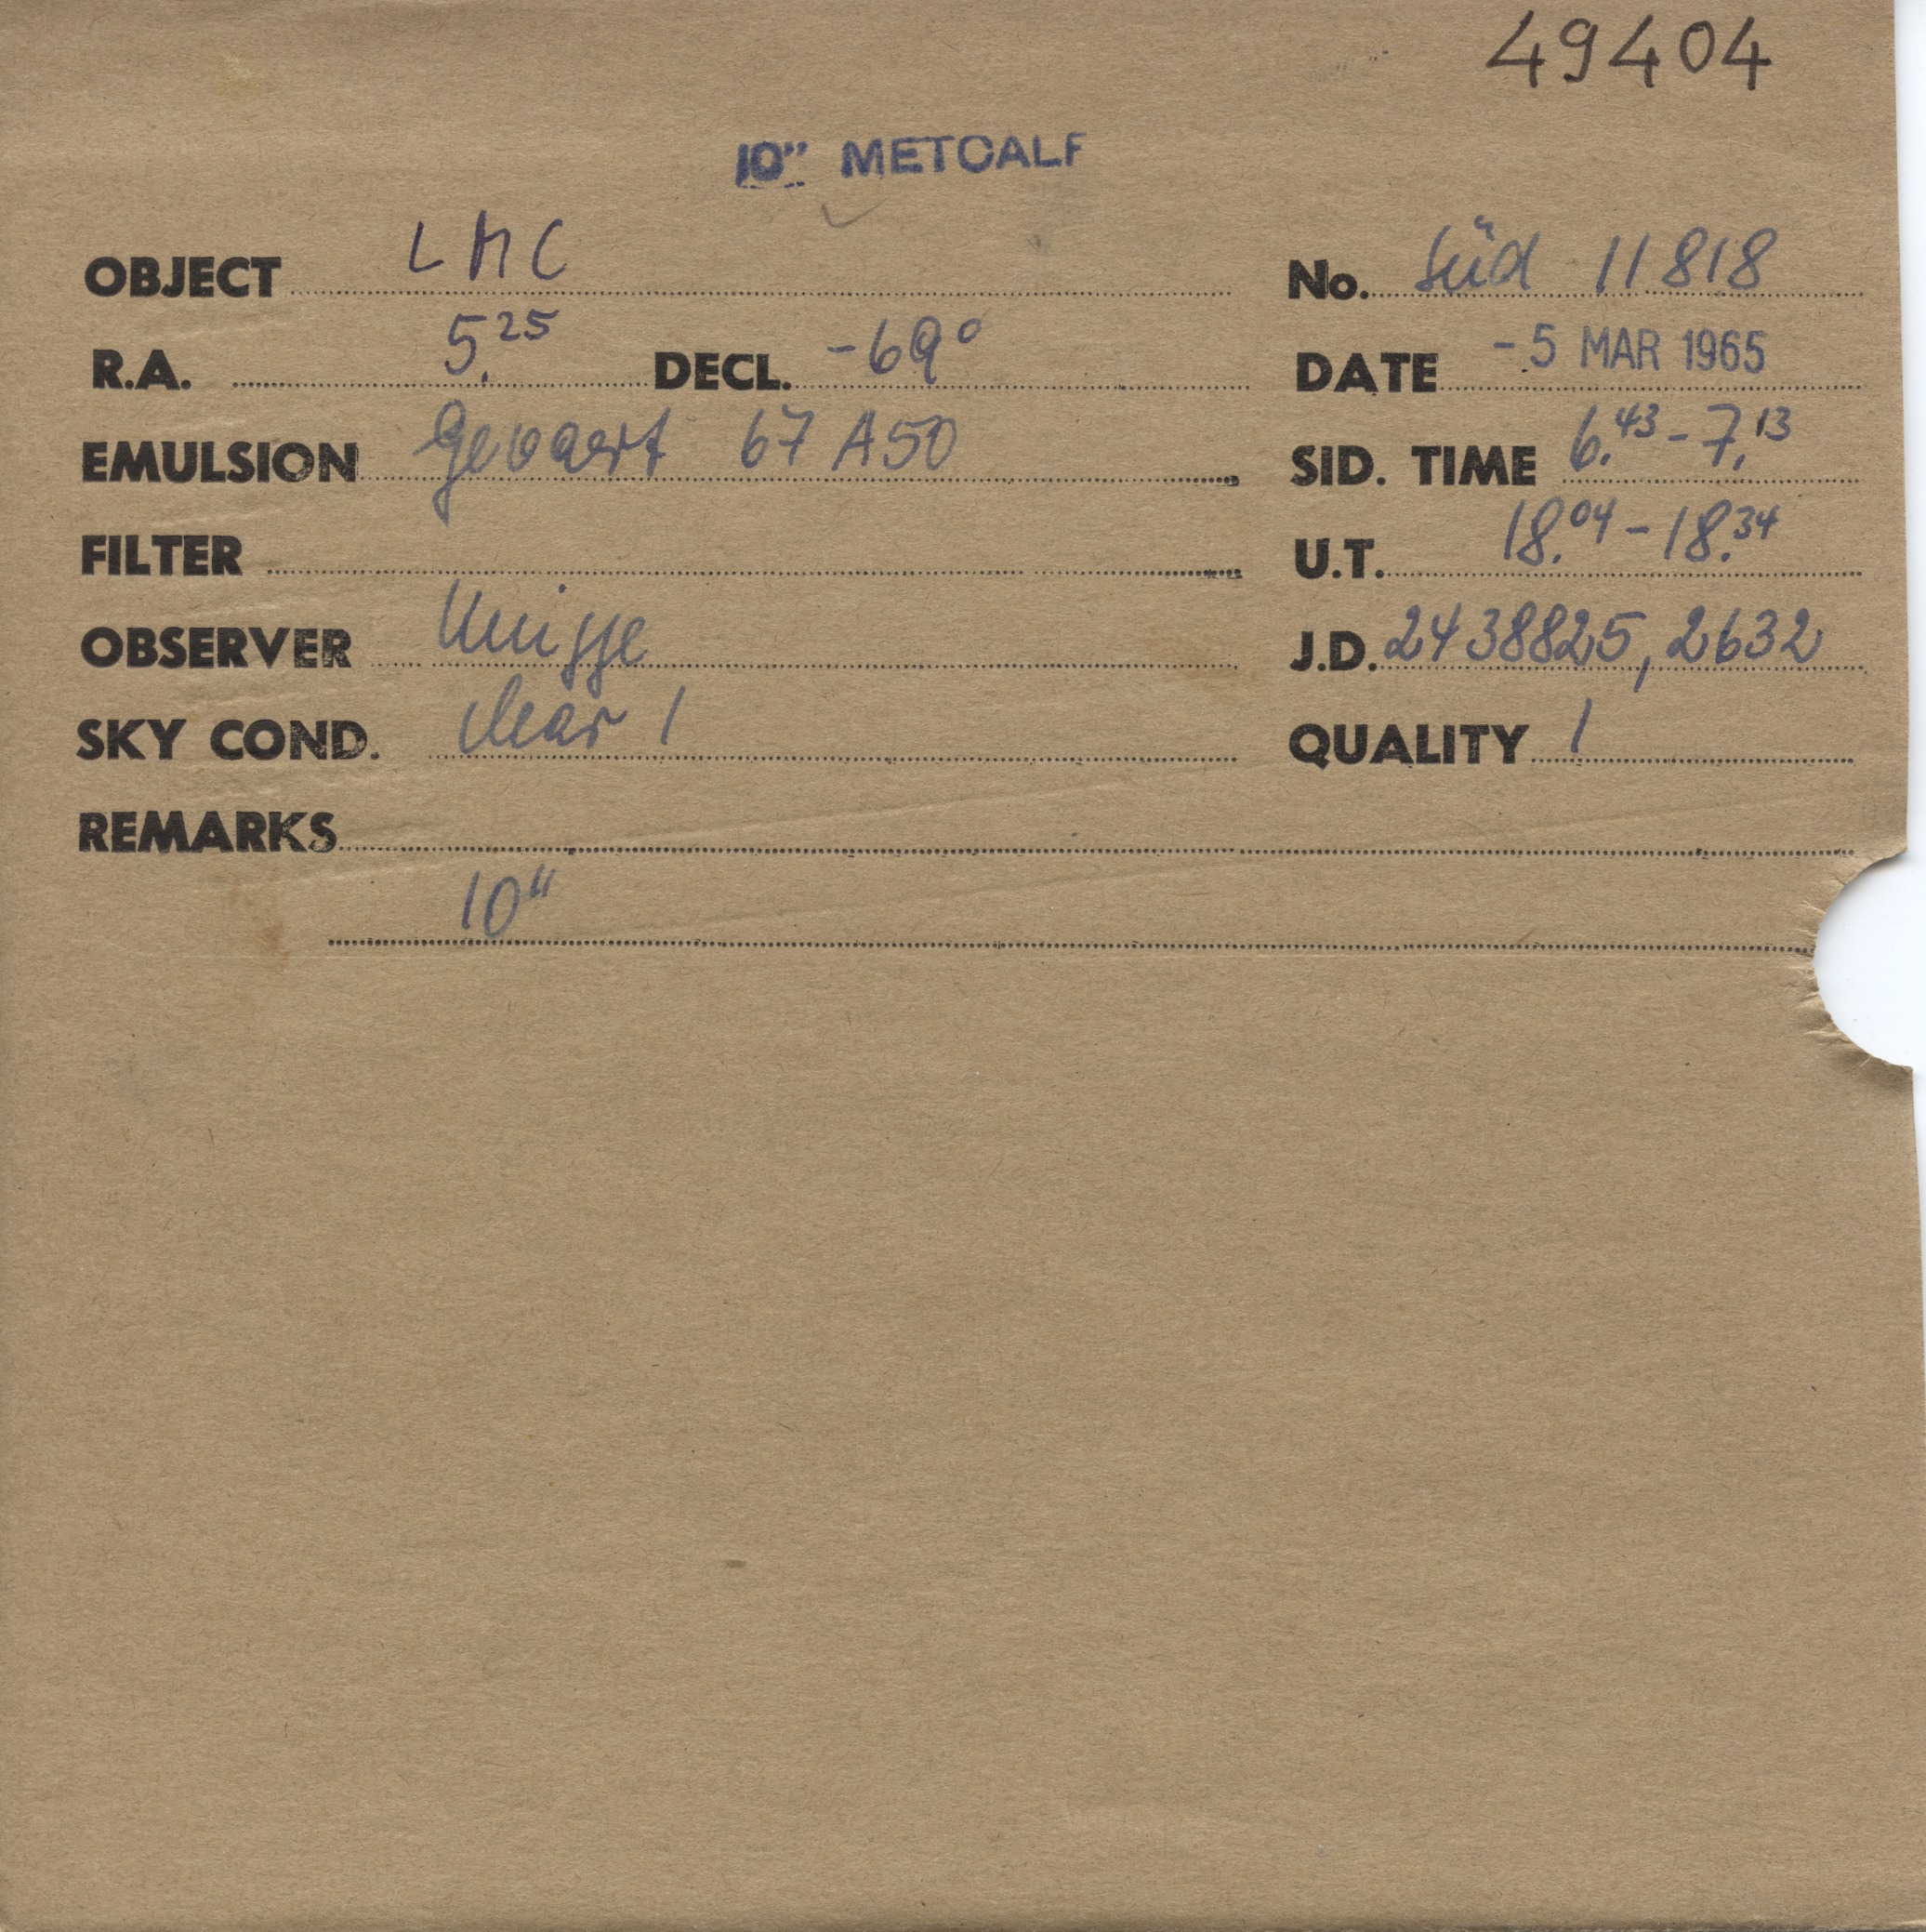 49404
10" METCALF
OBJECT LMC No. Süd 11818
R.A. 5.25 DECL. -69° DATE -5 MAR 1965
EMULSION Gevaert 67 A50 SID. TIME 6.43 - 7.13
FILTER U.T. 18.04 - 18.34
OBSERVER Knigge J.D. 2438825,2632
SKY COND. clear 1 QUALITY 1
REMARKS
10"